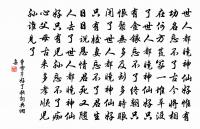 世人都曉神仙好惟有
功名忘不了古今將相
在何方荒冢一堆草沒
了世人都曉神仙好只
有金銀忘不了終朝只
恨聚無多及到多時眼
閉了世人都曉神仙好
只有姣妻忘不了君生
日日說恩情君死又隨
人去了世人都曉神仙
好只有兒孫忘不了癡
心父母古來多孝順兒
孫誰見了
曹雪芹好了歌